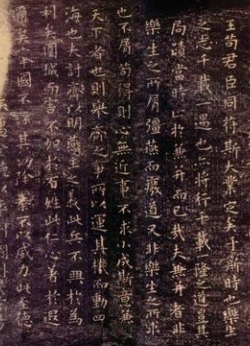 王苟君臣同符斯大業定矣于斯時也樂生
之志千載一遇也亦將行千載一隆之道豈其
局蹟當時止於兼并而已哉夫兼并者非
樂生之所屑彊燕而廢道又非樂生之所求
也不屑苟得則心無近事不求小成斯意兼
天下者也則舉齊之事所以運其機而動四
海也夫討齊以明燕主之義此兵不興於為
利矣圍城而害不加於百姓此仁心著於遐
邇矣舉國不謀其功除暴不以威力此至德